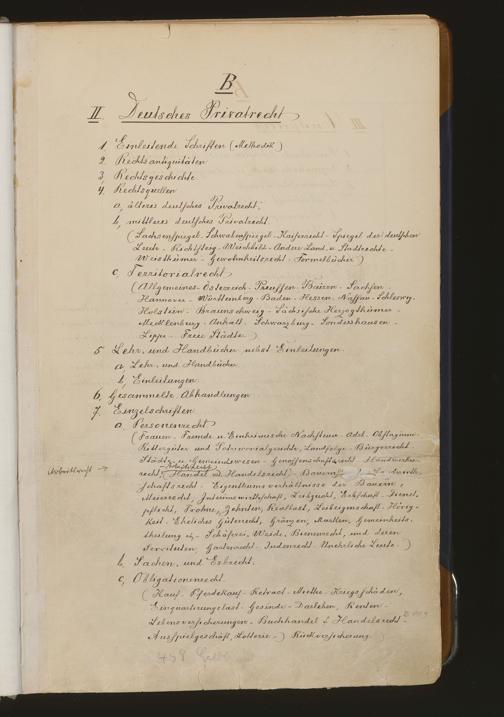 B
II. Deutsches Privatrecht
1. Einleitende Schriften (Methodik)
2. Rechtsantiquitäten
3. Rechtsgeschichte
4. Rechtsquellen
a, älteres deutsches Privatrecht,
b, mittleres deutsches Privatrecht
(Sachsenspiegel - Schwabenspiegel - Kaiserrecht - Spiegel der deutschen
Leute - Richtsteig - Weichbild - Andere Land- u. Stadtrechte -
Weisthümer - Gewohnheitsrecht - Formelbücher)
c. Territorialrecht
(Allgemeines - Österreich - Preussen - Baiern - Sachsen -
Hannover - Württemberg - Baden - Hessen - Nassau - Schleswig
Holstein - Braunschweig - Sächsische Herzogthümer -
Mecklenburg - Anhalt - Schwarzburg - Sondershausen -
Lippe - Freie Städte)
5. Lehr- und Handbücher nebst Einleitungen.
a, Lehr- und Handbücher
b, Einleitungen
6. Gesammelte Abhandlungen
7. Einzelschriften
a. Personenrecht
(Frauen - Fremde u. Einheimische Nachsteuer - Adel -
Rittergüter und Patrimonialgerichte, Landfolge - Bürgerrecht -
Städte u. Gemeindewesen - Genossenschaftsrecht - Handwerks-
recht, (Handel u. Handelsrecht) - Bauern
schaftsrecht - Eigenthumsverhältnisse der Bauern,
Meierrecht, Interimswirthschaft, Leibzucht, Erbschaft - Dienst-
pflicht, Frohne, Zehnten, Reallast, Leibeigenschaft - Hörig-
keit - Eheliches Güterrecht, Gränzen, Marken, Gemeinheits-
theilung - Schäferei, Weide, Bienenrecht, und deren
Servituten, Gastrecht - Judenrecht - Unehrliche Leute.)
b. Sachen- und Erbrecht.
c, Obligationenrecht
(Kauf - Pferdekauf - Retract - Miethe - Kriegsschäden,
Einquartierungslast - Gesinde - Darlehen, Renten -
Lebensversicherungen - Buchhandel & Handelsrecht -
Ausspielgeschäft, Lotterie -) Rückversicherung